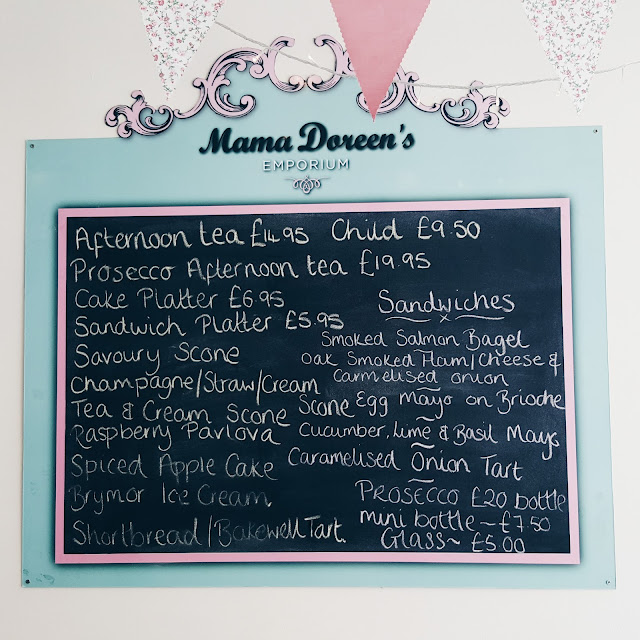 Mama Doreen's
EMPORIUM
Afternoon tea £14.95 Child £9.50
Prosecco Afternoon tea £19.95
Cake Platter £6.95
Sandwich Platter £5.95
Savoury Scone
Champagne/Straw/Cream Scone
Tea & Cream Scone
Raspberry Pavlova
Spiced Apple Cake
Brymor Ice Cream
Shortbread/Bakewell Tart.
Sandwiches
Smoked Salmon Bagel
Oak Smoked Ham/Cheese &
Carmelised onion
Egg Mayo on Brioche
Cucumber, Lime & Basil Mayo
Caramelised Onion Tart
PROSECCO £20 bottle
mini bottle ~ £7.50
Glass ~ £5.00